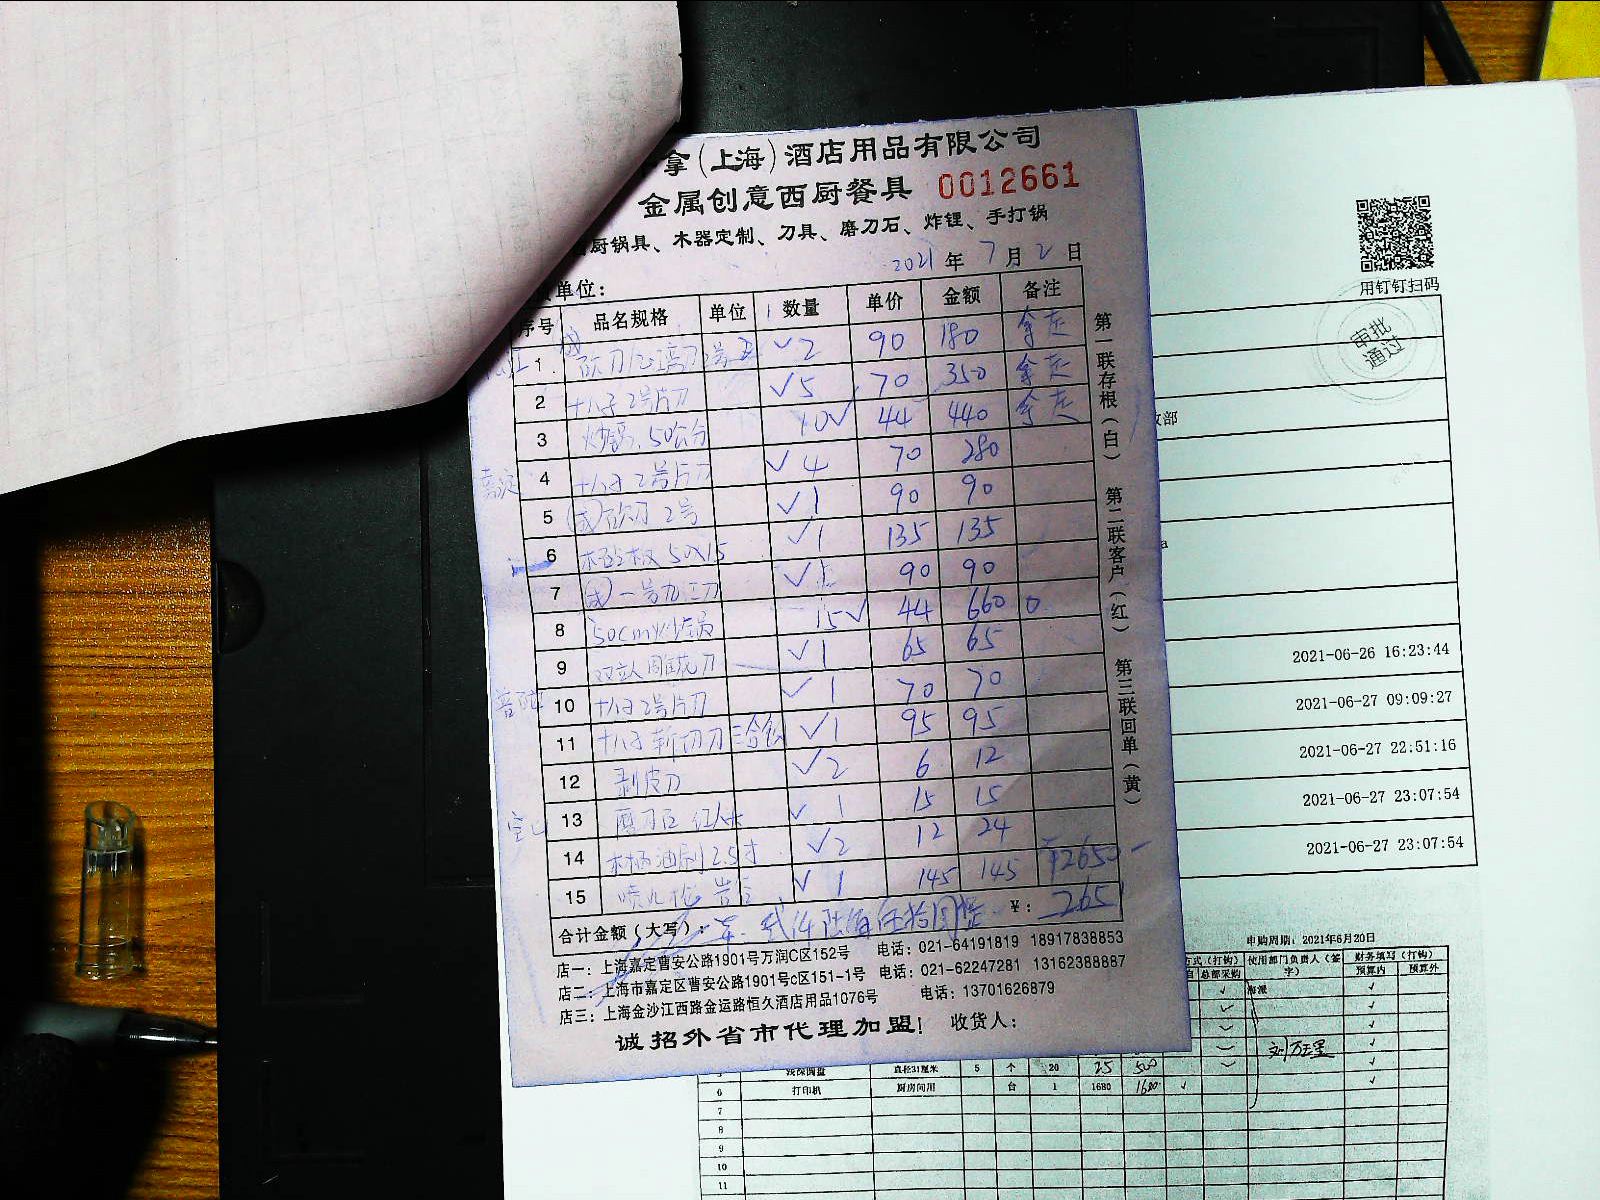 拿(上海)酒店用品有限公司
金属创意西厨餐具 0012661
厨锅具、木器定制、刀具、磨刀石、炸锂、手打锅
2021年7月2日
单位:
序号 品名规格 单位 数量 单价 金额 备注
1 2 90 180 拿走
2 十八子2号片刀 √5 70 350 拿走
3 炒锅.50公分 10√ 44 440 拿走
嘉定 4 十八子2号片刀 √4 70 280
5 砍刀2号 √1 90 90
6 50X15 √1 135 135
7 一号九江刀 √1 90 90
8 50cm炒锅 15√ 44 660
9 双立人雕花刀 √1 65 65
10 十八子2号片刀 √1 70 70
11 十八子斩切刀三合钢 √1 95 95
12 剥皮刀 √2 6 12
13 磨刀石 √1 15 15
14 木柄油刷2.5寸 √2 12 24
15 √1 145 145 2650
合计金额(大写): ¥: 265
店一:上海嘉定曹安公路1901号万润C区152号 电话:021-64191819 18917838853
店二:上海市嘉定区曹安公路1901号c区151-1号 电话:021-62247281 13162388887
店三:上海金沙江西路金运路恒久酒店用品1076号 电话:13701626879
诚招外省市代理加盟! 收货人:
第一联存根(白) 第二联客户(红) 第三联回单(黄)
用钉钉扫码
审批
通过
部
a
2021-06-26 16:23:44
2021-06-27 09:09:27
2021-06-27 22:51:16
2021-06-27 23:07:54
2021-06-27 23:07:54
申购周期:2021年6月20日
方式(打钩) 使用部门负责人(签字) 财务填写(打钩)
总部采购 预算内 预算外
浅深圆盘 直径31厘米 5 个 20 25 500
6 打印机 厨房间用 台 1 1680 1680 √
7
8
9
10
11